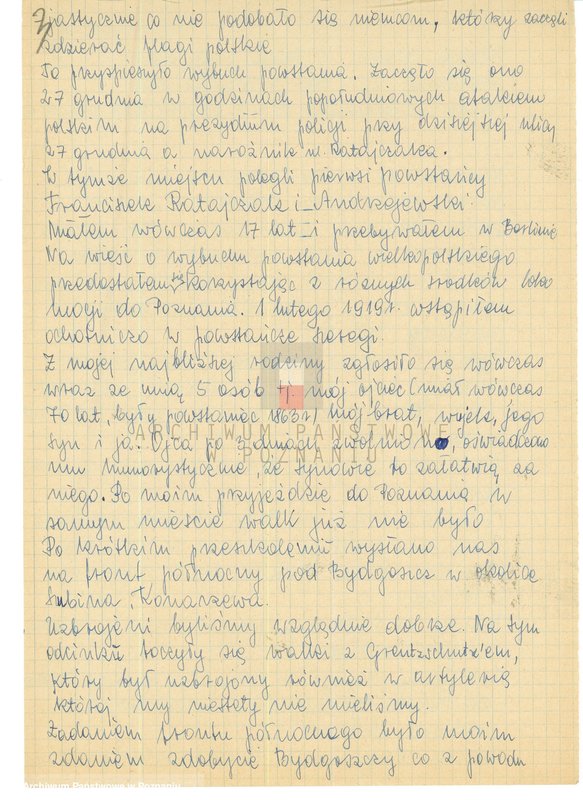 3
jastycznie co nie podobało się niemcom, którzy zaczęli
zdzierać flagi polskie
To przyspieszyło wybuch powstania. Zaczęło się ono
27 grudnia w godzinach popołudniowych atakiem
polskim na prezydium policji przy dzisiejszej ulicy
27 grudnia a narożnik ul. Ratajczaka.
W tymże miejscu polegli pierwsi powstańcy
Franciszek Ratajczak i Andrzejewski
Miałem wówczas 17 lat i przebywałem w Berlinie
Na wieść o wybuchu powstania wielkopolskiego
przedostałem się korzystając z różnych środków loko
mocji do Poznania. 1 lutego 1919 r. wstąpiłem
ochotniczo w powstańcze szeregi.
Z mojej najbliższej rodziny zgłosiło się wówczas
wraz ze mną 5 osób tj. mój ojciec (miał wówczas
70 lat, były powstaniec 1863 r) mój brat, wujek, jego
syn i ja. Ojca po dniach zwolniono, oświadczono
mu humorystycznie, że synowie to załatwią za
niego. Po moim przyjeździe do Poznania w
samym mieście walk już nie było
Po krótkim przeszkoleniu wysłano nas
na front północny pod Bydgoszcz w okolice
Łubina, Konarzewa.
Uzbrojeni byliśmy względnie dobrze. Na tym
odcinku toczyły się walki z Grentzschutz'em,
który był uzbrojony również w artylerię
której my niestety nie mieliśmy.
Zadaniem frontu północnego było moim
zdaniem zdobycie Bydgoszczy co z powodu
ARCHIWUM PAŃSTWOWE
W POZNANIU
Archiwum Państwowe w Poznaniu